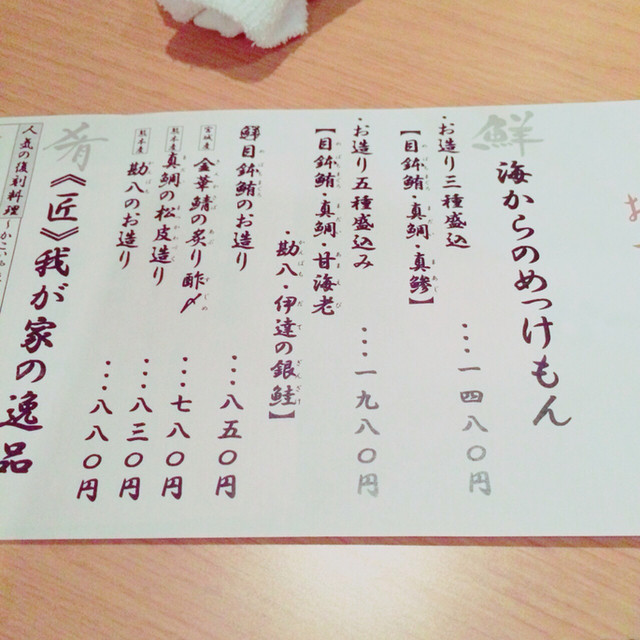 鮮 海からのめっけもん
・お造り三種盛込 ・・・一四八〇円
【目鉢鮪・真鯛・真鯵】
・お造り五種盛込み ・・・一九八〇円
【目鉢鮪・真鯛・甘海老
・勘八・伊達の銀鮭】
鮮目鉢鮪のお造り ・・・八五〇円
宮城産 金華鯖の炙り酢〆 ・・・七八〇円
熊本産 真鯛の松皮造り ・・・八三〇円
熊本産 勘八のお造り ・・・八八〇円
肴 《匠》我が家の逸品